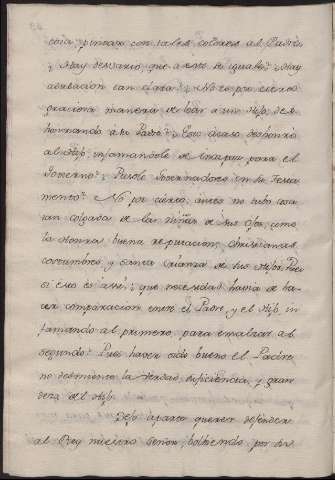 cosa, pintar con tales colores al Padre,
¿Hay desvario que a este se iguale? ¿Hay
adulacion tan clara? No por cierto
graciosa manera de loar a un Hijo, des
honrrando a su Padre? ¿Este acaso despojará
al Hijo, infamandole de incapaz para el
Govierno? ¿Pusole Governadores en su Testa
mento? No por cierto, antes no tubo cosa
tan colgada de las niñas de sus ojos, como
la Honrra, buena reputacion, christianas
costumbres, y santa crianza de sus Hijos. Pues
si esto es assi, ¿que necesidad havia de ha
cer comparacion entre el Padre, y el Hijo, in
famando al primero, para ensalzar al
segundo? Pues haver sido bueno el Padre,
no desmiente la verdad, suficiencia, y gran
deza del Hijo.
Dejo aparte querer defender
al Rey nuestro Señor, bolbiendo por su